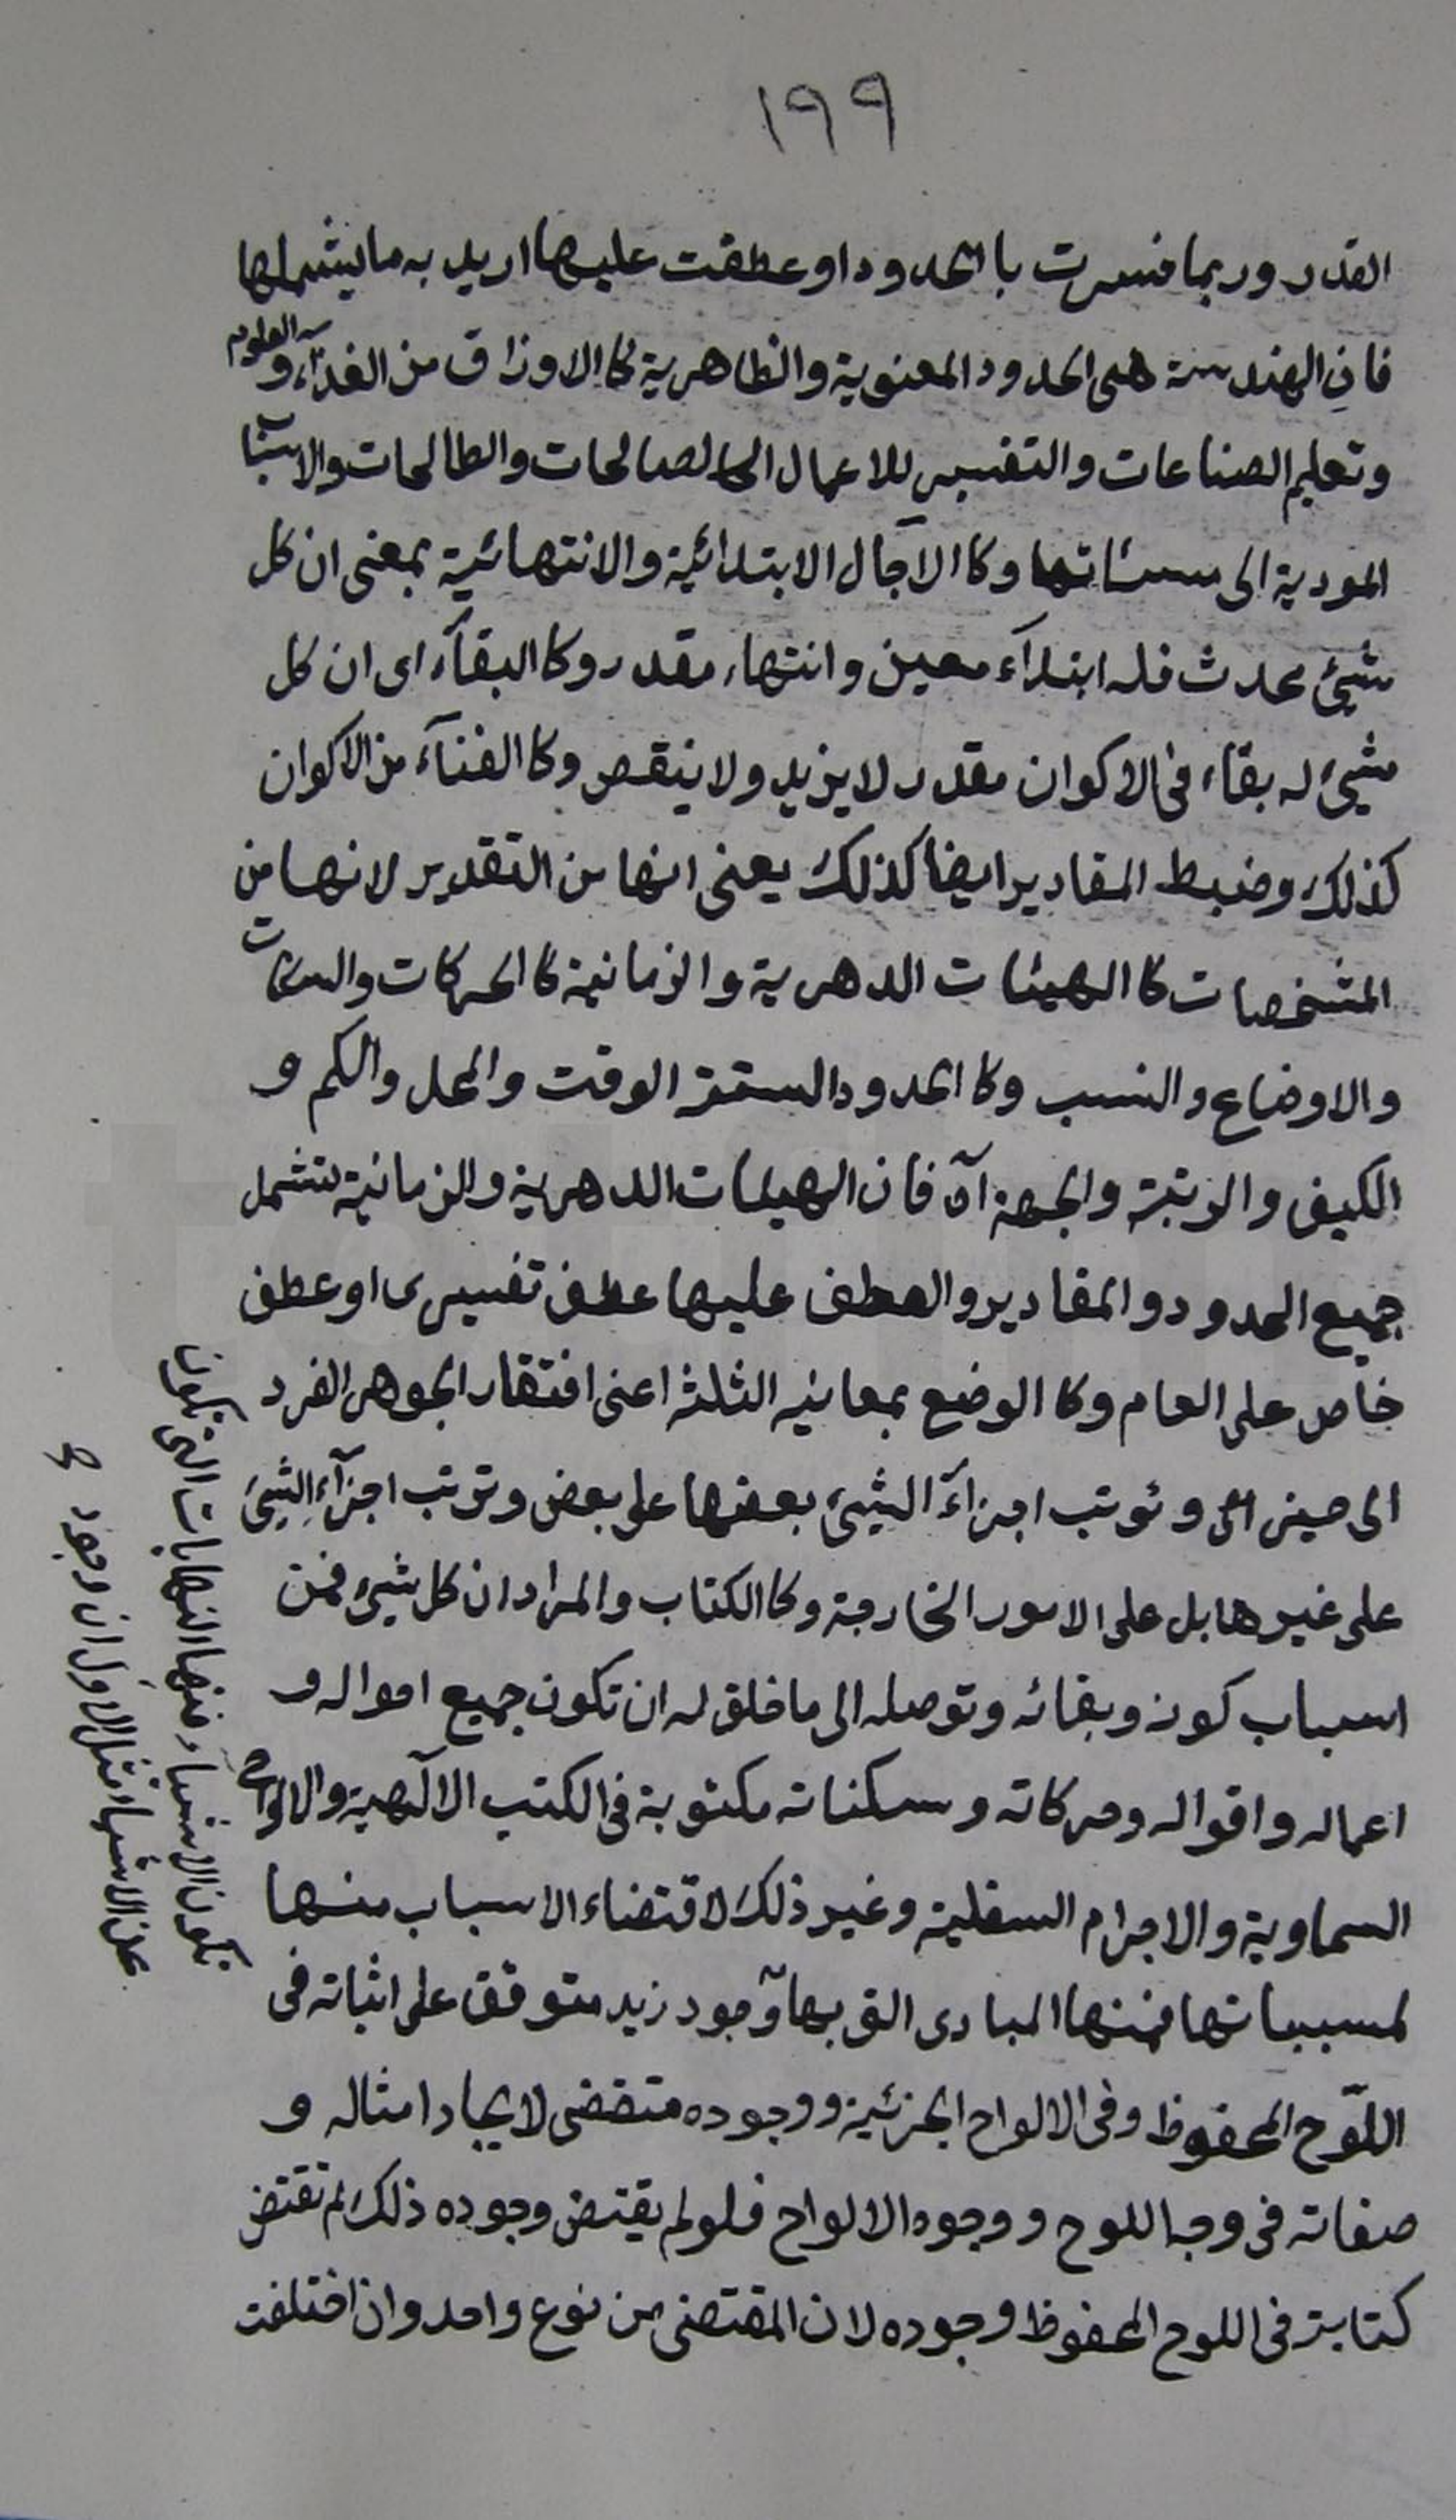 ١٩٩
القدر وربما فسرت بالحدود او عطفت عليها اريد به ما يشملها
فان الهندسة هى الحدود المعنوية والظاهرية كالارزاق من الغذآء و العلوم
وتعليم الصناعات والتفسير للاعمال الصالحات والطالحات والاسباب
المودية الى مسبباتها وكا الآجال الابتدائية والانتهائية بمعنى ان كل
شيئ محدث فله ابتدآء معين وانتهاء مقدر وكا البقآء اى ان كل
شيئ له بقاء فى الاكوان مقدر لا يزيد ولا ينقص وكا الفنآء من الاكوان
كذلك وضبط المقادير ايضا كذلك يعنى انها من التقدير لانها من
المشخصات كا الهيئات الدهرية والزمانية كا الحركات والسكنات
والاوضاع والنسب وكا الحدود الستة الوقت والمحل والكم و
الكيف والرتبة والجهة آه فان الهيئات الدهرية والزمانية تشمل
جميع الحدود والمقادير والعطف عليها عطف تفسيرى او عطف
خاص على العام وكا الوضع بمعانيه الثلثة اعنى افتقار الجوهر الفرد
الى حيز وترتب اجزآء الشيئ بعضها على بعض وترتب اجزآء الشيئ
على غيرها بل على الامور الخارجة وكا الكتاب والمراد ان كل شيئ فمن
اسباب كونه وبقائه وتوصله الى ما خلق له ان تكون جميع احواله و
اعماله واقواله وحركاته وسكناته مكتوبة فى الكتب الآلهية والالواح
السماوية والاجرام السفلية وغير ذلك لاقتضاء الاسباب منها
لمسبباتها فمنها المبادى التى بها وجود زيد متوقف على اثباته فى
اللّوح المحفوظ وفى الالواح الجزئية ووجوده مقتضى لايجاد امثاله و
صفاته فى وجه اللوح ووجوه الالواح فلو لم يقتض وجوده ذلك لم تقتض
كتابته فى اللوح المحفوظ وجوده لان المقتضى من نوع واحد وان اختلفت
تكون الاشياء ومنها النهايات التى تكون
عن الاشياء فمثال الاول ان وجود